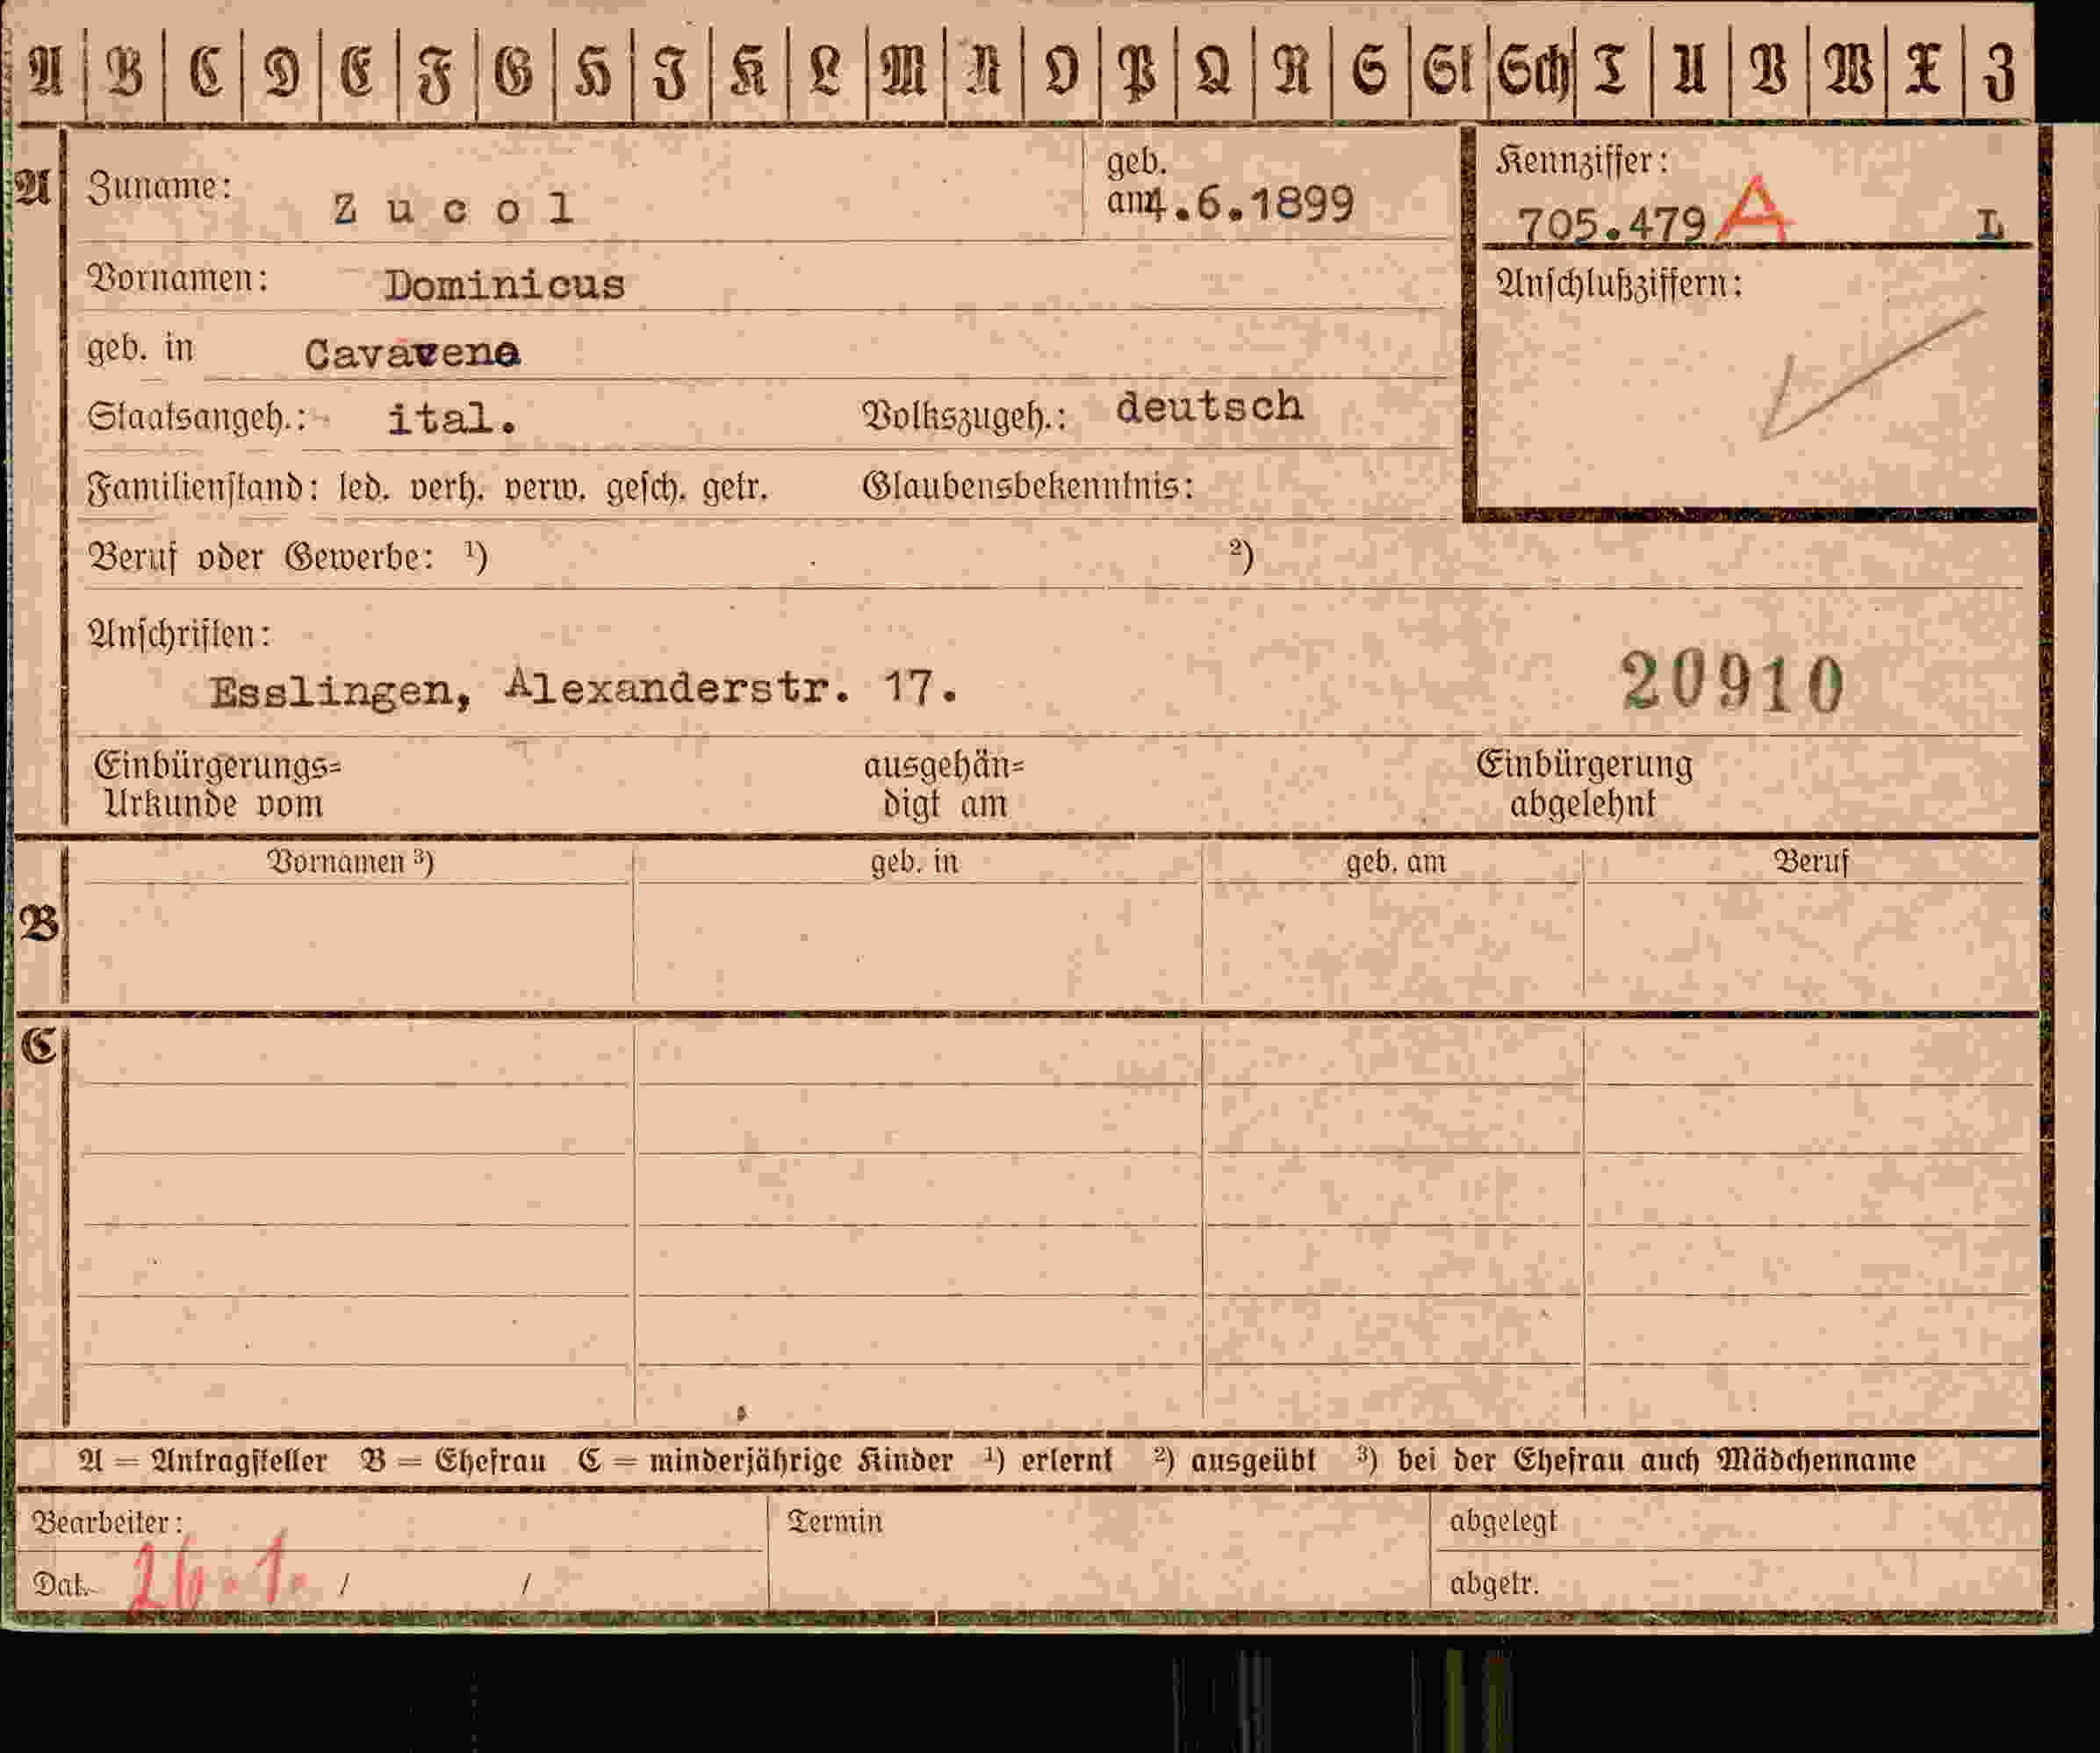 A B C D E F G H I K L M N O P Q R S St Sch T U V W X Z
A Zuname: Zucol geb. am 4.6.1899 Kennziffer: 705.479 A L
Vornamen: Dominicus Anschlußziffern:
geb. in Cavarena
Staatsangeh.: ital. Volkszugeh.: deutsch
Familienstand: led. verh. verw. gesch. getr. Glaubensbekenntnis:
Beruf oder Gewerbe: ¹) ²)
Anschriften:
Esslingen, Alexanderstr. 17. 20910
Einbürgerungs= ausgehän= Einbürgerung
Urkunde vom digt am abgelehnt
Vornamen ³) geb. in geb. am Beruf
B
C
A = Antragsteller B = Ehefrau C = minderjährige Kinder ¹) erlernt ²) ausgeübt ³) bei der Ehefrau auch Mädchenname
Bearbeiter: Termin abgelegt
Dat. 26.1. / / abgetr.